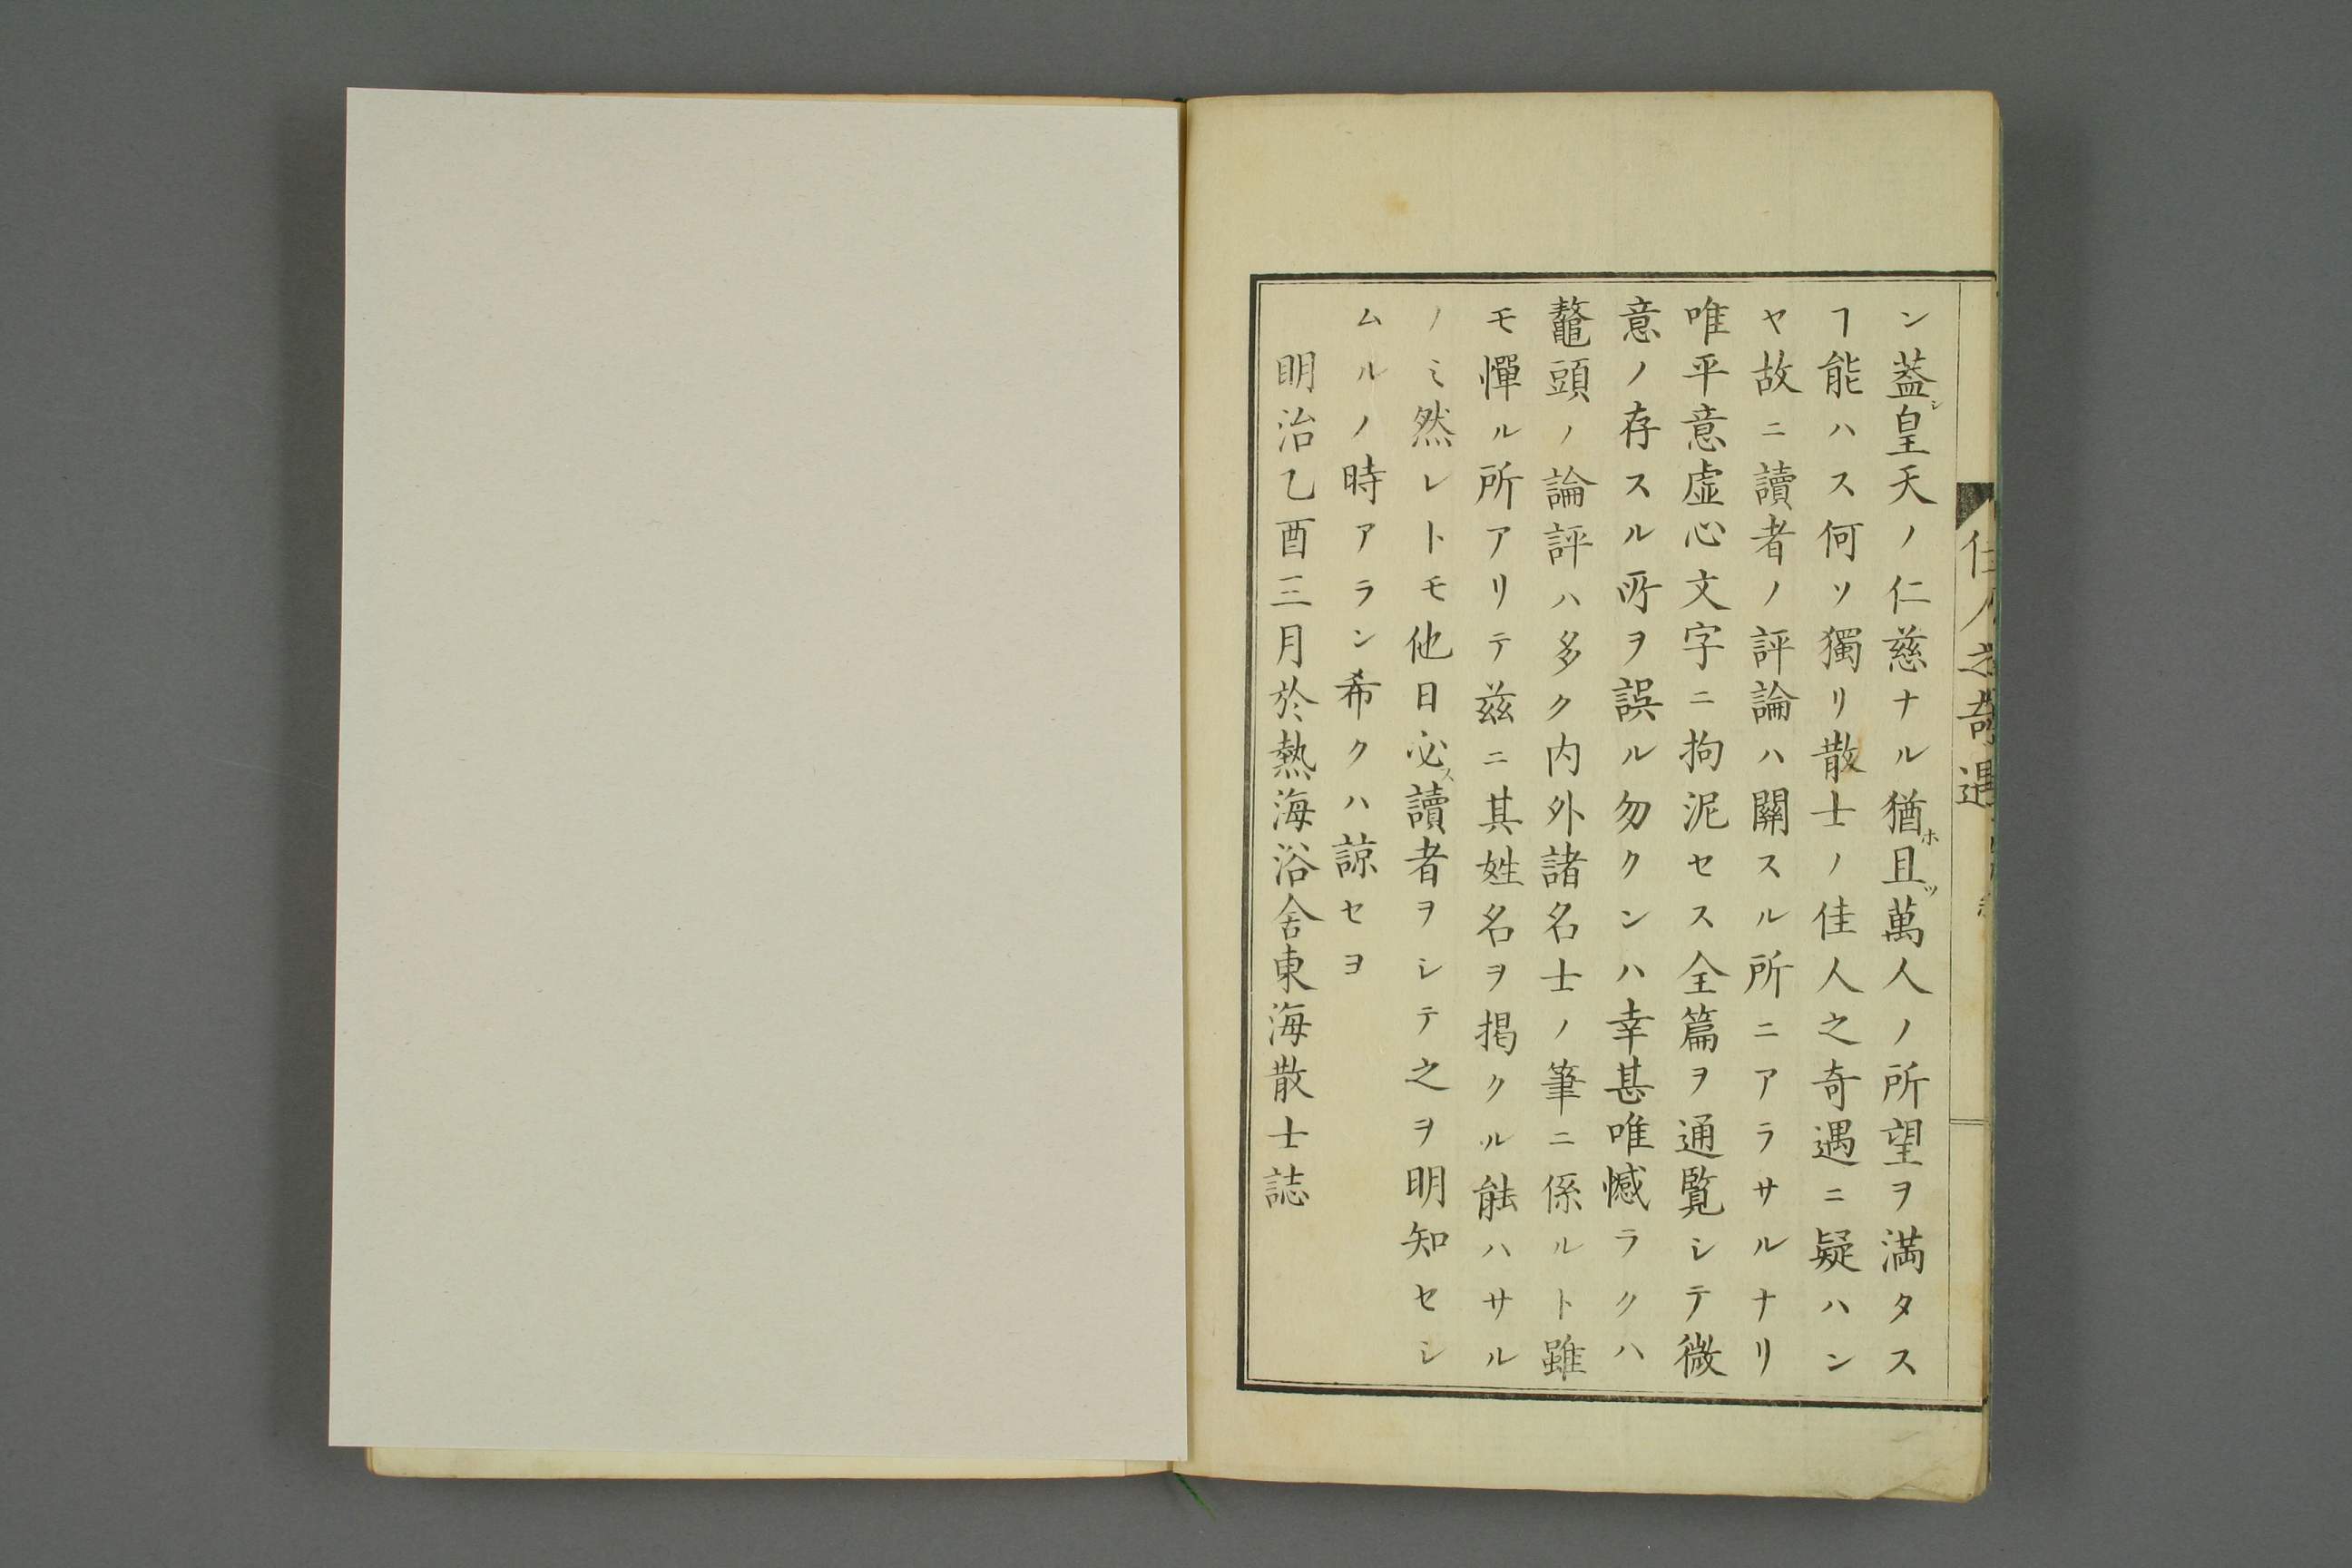 ン蓋シ皇天ノ仁慈ナル猶ホ且ツ萬人ノ所望ヲ満タス
ヿ能ハス何ソ獨リ散士ノ佳人之奇遇ニ疑ハン
ヤ故ニ讀者ノ評論ハ關スル所ニアラサルナリ
唯平意虚心文字ニ拘泥セス全篇ヲ通覧シテ微
意ノ存スル所ヲ誤ル勿クンハ幸甚唯憾ラクハ
鼇頭ノ論評ハ多ク内外諸名士ノ筆ニ係ルト雖
モ憚ル所アリテ茲ニ其姓名ヲ掲クル能ハサル
ノミ然レトモ他日必ス讀者ヲシテ之ヲ明知セシ
ムルノ時アラン希クハ諒セヨ
明治乙酉三月於熱海浴舎東海散士誌
佳人之奇遇